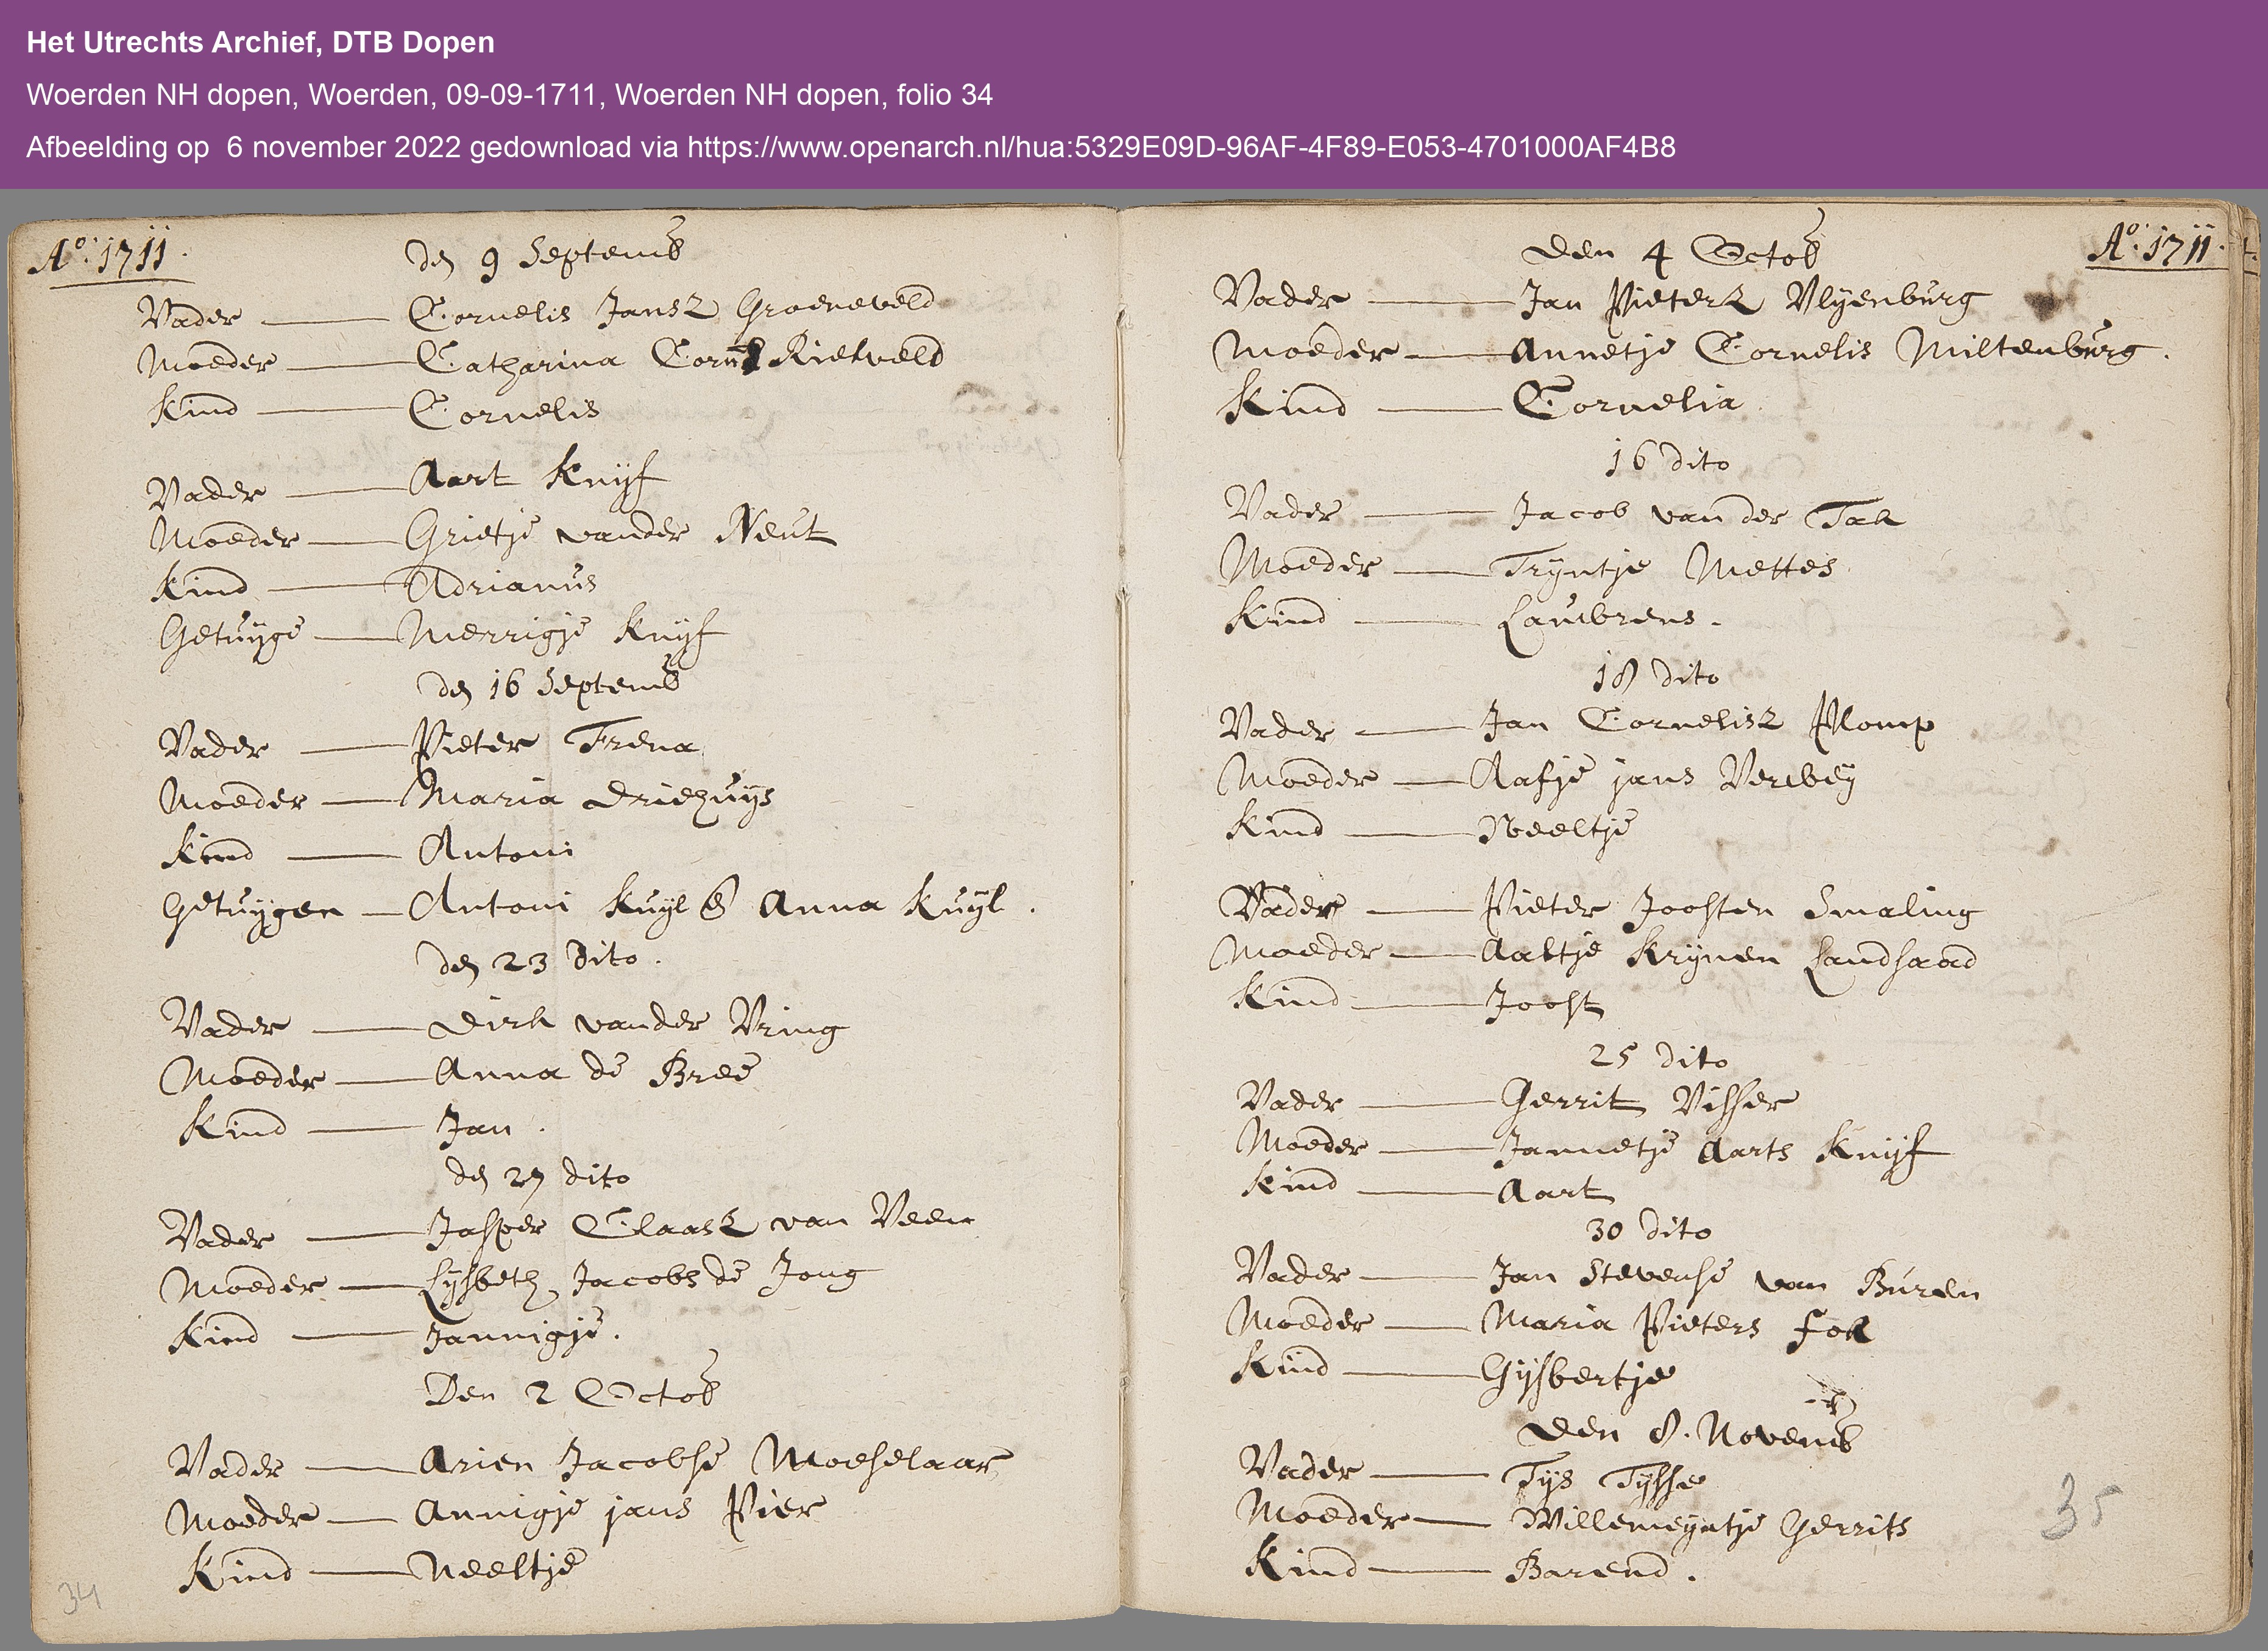 Het Utrechts Archief, DTB Dopen
Woerden NH dopen, Woerden, 09-09-1711, Woerden NH dopen, folio 34
Afbeelding op 6 november 2022 gedownload via https://www.openarch.nl/hua:5329E09D-96AF-4F89-E053-4701000AF4B8
Ao: 1711.
den 9 Septemb
Vader — Cornelis Jansz Groeneveld
Moeder — Catharina Corns Rietveld
Kind — Cornelis
Vader — Aart Knijf
Moeder — Grietje vander Neut
Kind — Adrianus
Getuijge — Merrigje Knijf
den 16 Septemb
Vader — Pieter Frena
Moeder — Maria Driehuijs
Kind — Antoni
Getuijgen — Antoni Kuijl & Anna Kuijl.
den 23 Dito.
Vader — Dirk vander Vring
Moeder — Anna de Bree
Kind — Jan.
den 27 dito
Vader — Jasper Claasz van Veen
Moeder — Lijsbeth Jacobs de Jong
Kind — Jannigje.
Den 2 Octob
Vader — Arien Jacobse Moeselaar
Moeder — Annigje jans Pier
Kind — Neeltje
34
Ao: 1711.
Den 4 Octob
Vader — Jan Pietersz Vlijenburg
Moeder — Annetje Cornelis Miltenburg.
Kind — Cornelia
16 dito
Vader — Jacob van der Tak
Moeder — Trijntje Mettes
Kind — Louwrens.
18 dito
Vader — Jan Cornelisz Plomp
Moeder — Aafje jans Verweij
Kind — Neeltje
Vader — Pieter Joosten Smaling
Moeder — Aaltje Krijnen Landsaad
Kind — Joost
25 dito
Vader — Gerrit Visser
Moeder — Jannetje Aarts Knijf
Kind — Aart
30 dito
Vader — Jan Stevense van Buren
Moeder — Maria Pieters Fok
Kind — Gijsbertje
Den 8. Novemb
Vader — Tijs Tijsse
Moeder — Willemeijntje Gerrits
Kind — Barend.
35